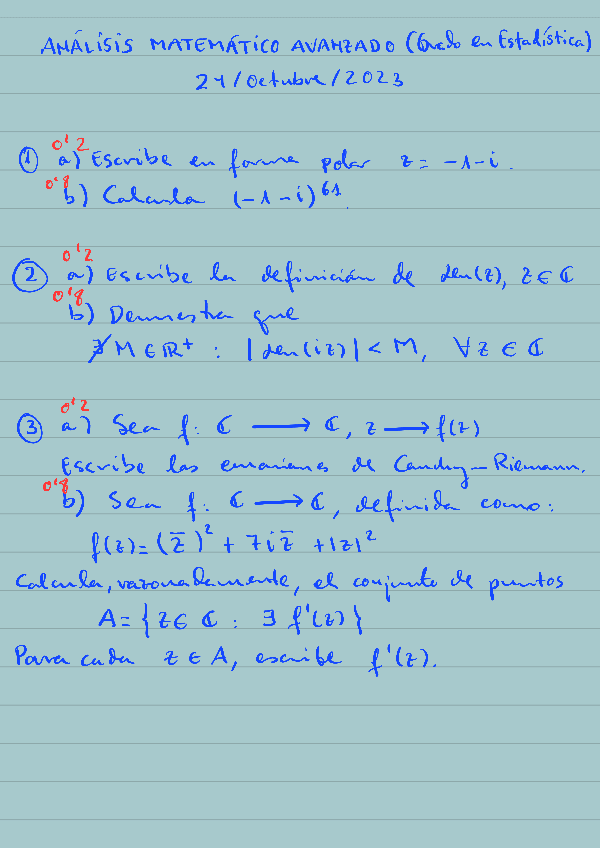 ANÁLISIS MATEMÁTICO AVANZADO (Grado en Estadística)
24/octubre/2023
0'2
① a) Escribe en forma polar z = -1-i.
0'8
b) Calcula (-1-i)^61.
0'2
② a) Escribe la definición de sen(z), z ∈ ℂ
0'8
b) Demuestra que
∄ M ∈ ℝ⁺ : |sen(iz)| < M, ∀ z ∈ ℂ
0'2
③ a) Sea f: ℂ ⟶ ℂ, z ⟶ f(z)
Escribe las ecuaciones de Cauchy-Riemann.
0'8
b) Sea f: ℂ ⟶ ℂ, definida como:
f(z) = (z̄)² + 7iz̄ + |z|²
Calcula, razonadamente, el conjunto de puntos
A = {z ∈ ℂ : ∃ f'(z)}
Para cada z ∈ A, escribe f'(z).